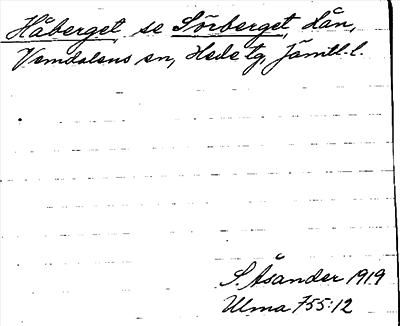 Håberget, se Sörberget, dån,
Vemdalens sn, Hede tg, Jämtl. l.
S. Åsander 1919
Ulma 755:12